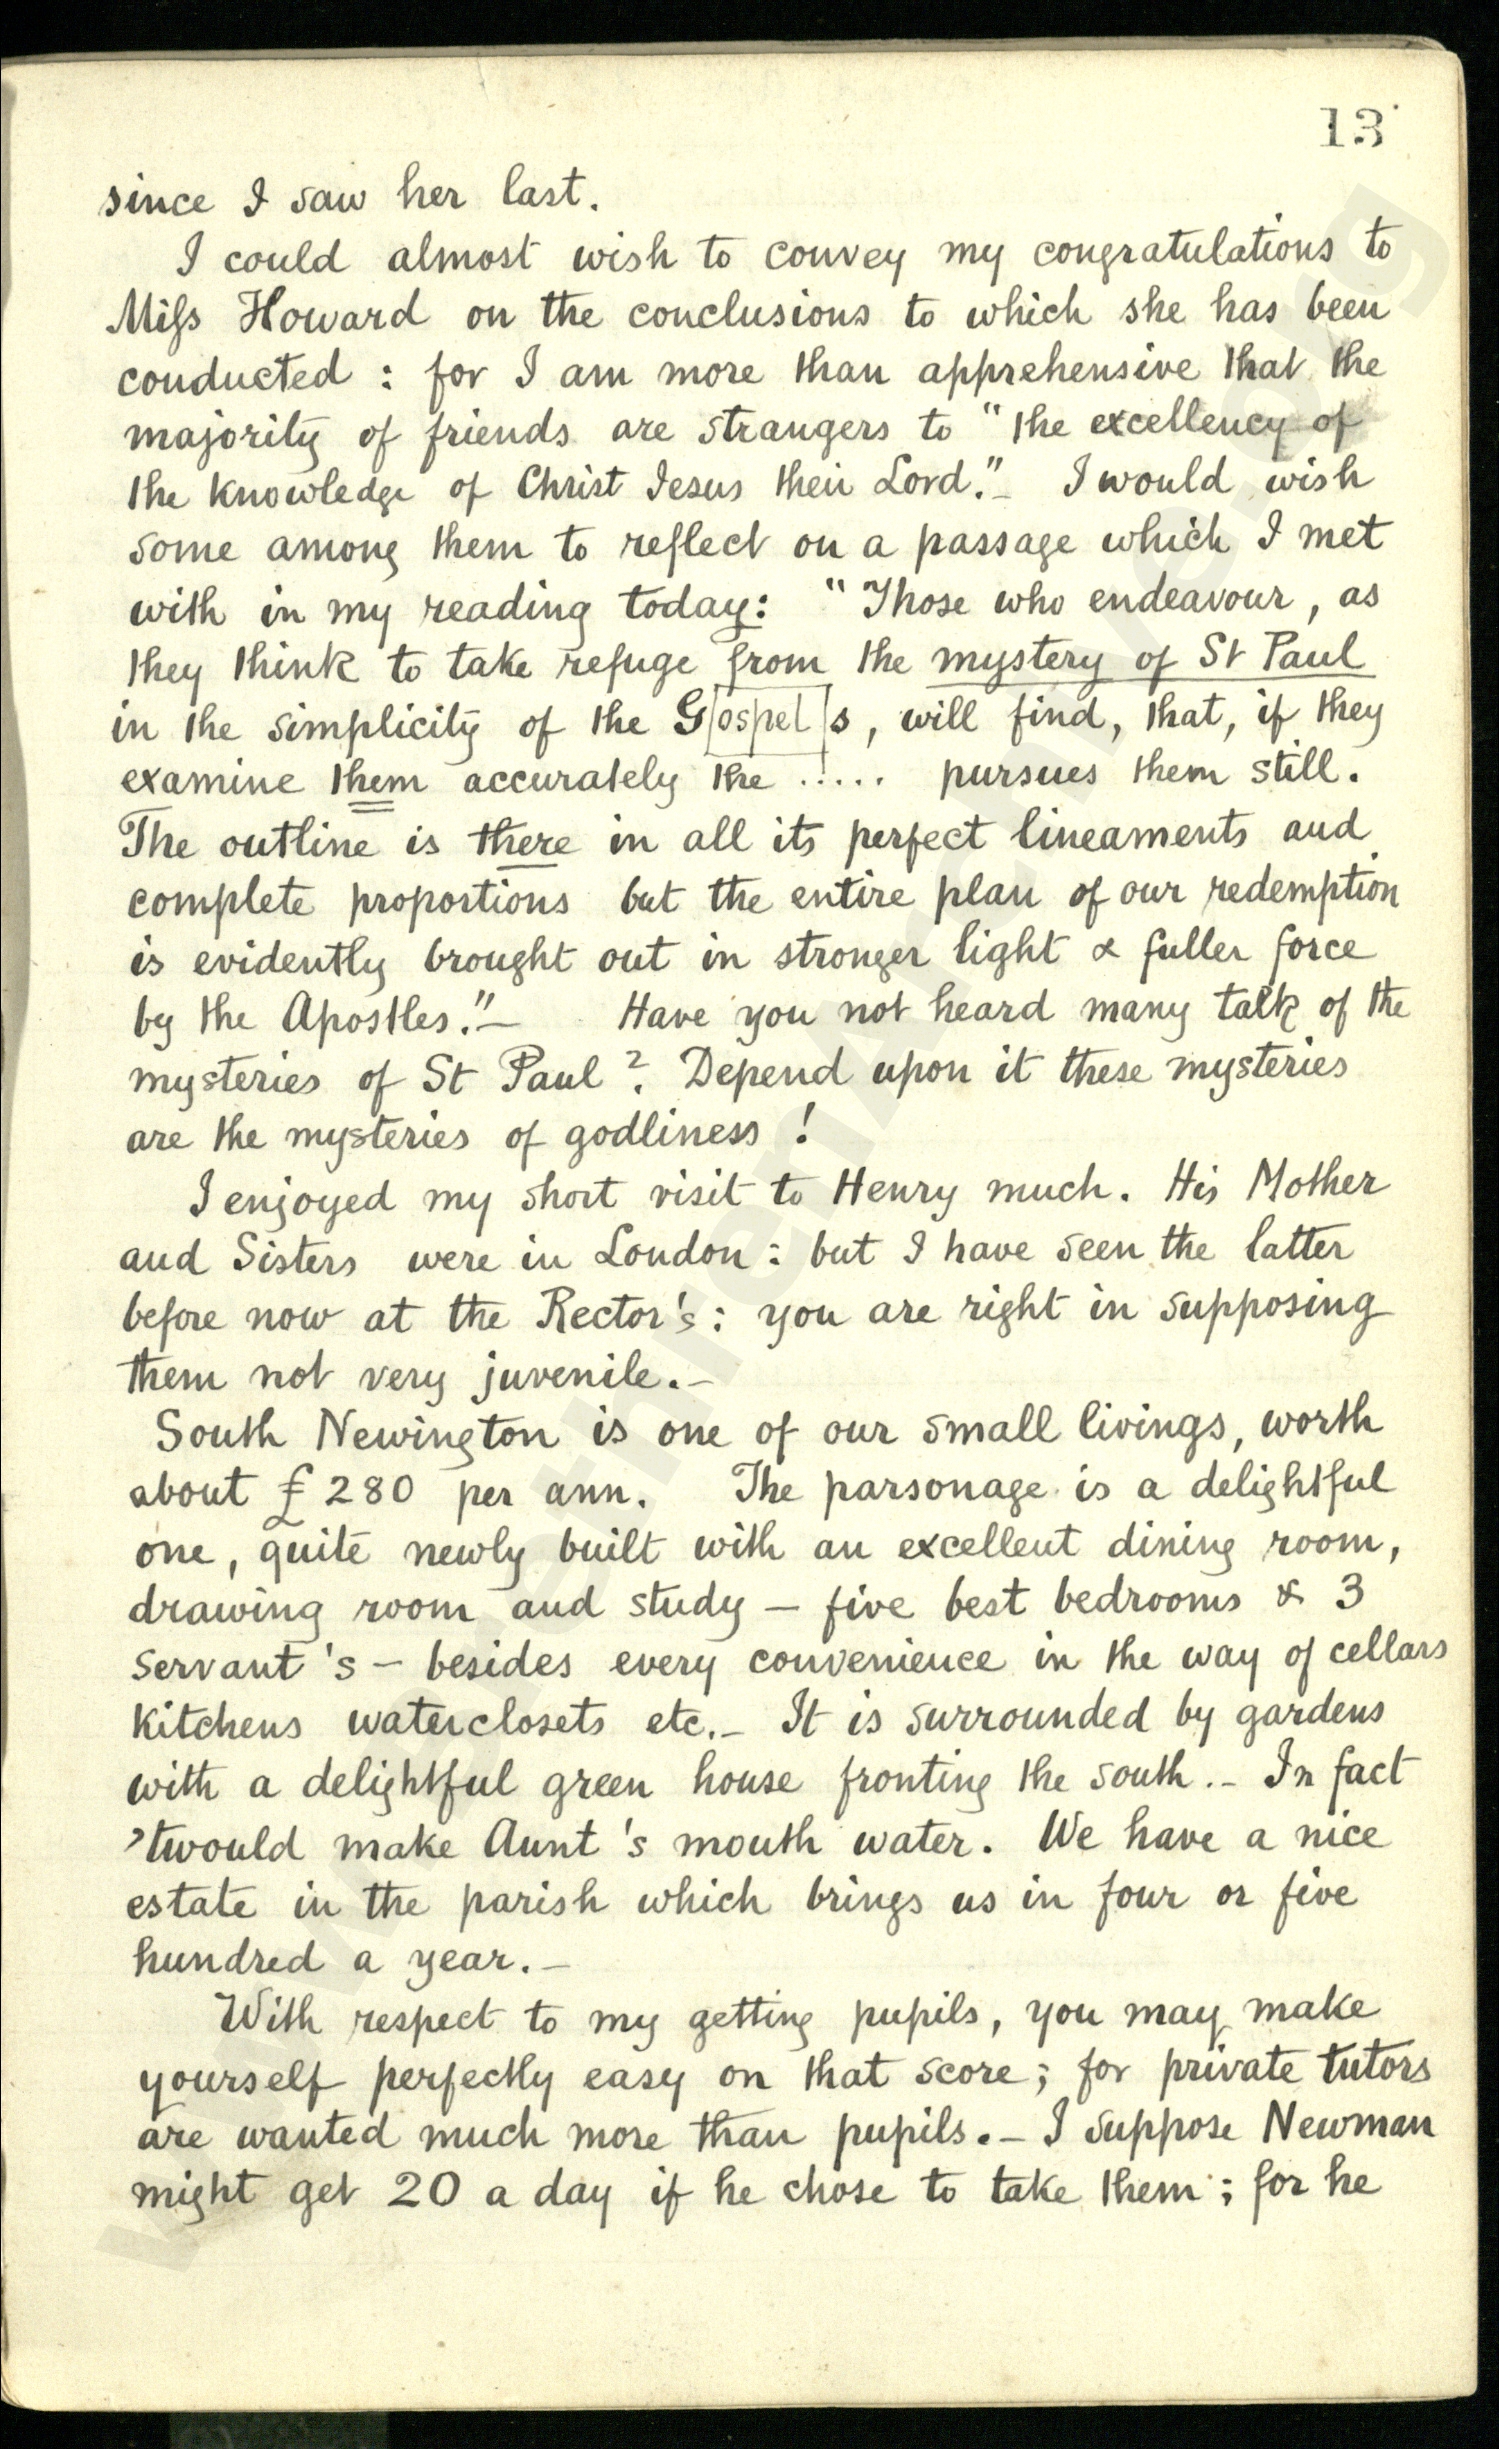 13
since I saw her last.
I could almost wish to convey my congratulations to
Miſs Howard on the conclusions to which she has been
conducted : for I am more than apprehensive that the
majority of friends are strangers to "the excellency of
the knowledge of Christ Jesus their Lord."- I would wish
some among them to reflect on a passage which I met
with in my reading today: "Those who endeavour, as
they think to take refuge from the mystery of St Paul
in the simplicity of the G[ospel]s, will find, that, if they
examine them accurately the ..... pursues them still.
The outline is there in all its perfect lineaments and
complete proportions but the entire plan of our redemption
is evidently brought out in stronger light & fuller force
by the Apostles."- Have you not heard many talk of the
mysteries of St Paul? Depend upon it these mysteries
are the mysteries of godliness !
I enjoyed my short visit to Henry much. His Mother
and Sisters were in London : but I have seen the latter
before now at the Rector's : you are right in supposing
them not very juvenile.-
South Newington is one of our small livings, worth
about £280 per ann. The parsonage is a delightful
one, quite newly built with an excellent dining room,
drawing room and study - five best bedrooms & 3
servant's - besides every convenience in the way of cellars
kitchens waterclosets etc.- It is surrounded by gardens
with a delightful green house fronting the south.- In fact
'twould make Aunt's mouth water. We have a nice
estate in the parish which brings us in four or five
hundred a year.-
With respect to my getting pupils, you may make
yourself perfectly easy on that score ; for private tutors
are wanted much more than pupils.- I suppose Newman
might get 20 a day if he chose to take them ; for he
www.BrethrenArchive.org